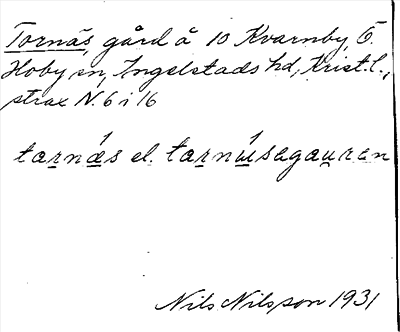 Tornäs, gård å 10 Kvarnby, Ö.
Hoby sn, Ingelstads hd, Krist. l.,
strax N. 6 i 16
tarnǽ̱s el.
Nils Nilsson 1931